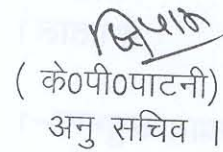 ( के0पी0पाटनी)
अनु सचिव ।